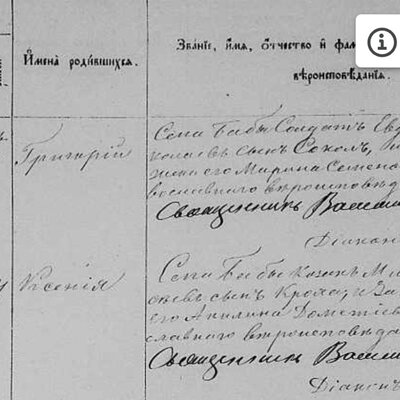 Имена родившихся.
Званіе, имя, отчество и фам
вѣроисповѣданія.
Григорій
Села Бабы Солдатъ Евд
сынъ Соколъ,
жена его Марина Семено
вославнаго вѣроисповѣд
Священникъ Васил
Діакон
Ксенія
Села Бабы козакъ Ми
сынъ Кроха, и за
его Акилина Дометіев
славнаго вѣроисповѣда
Священникъ Васил
Діаконъ